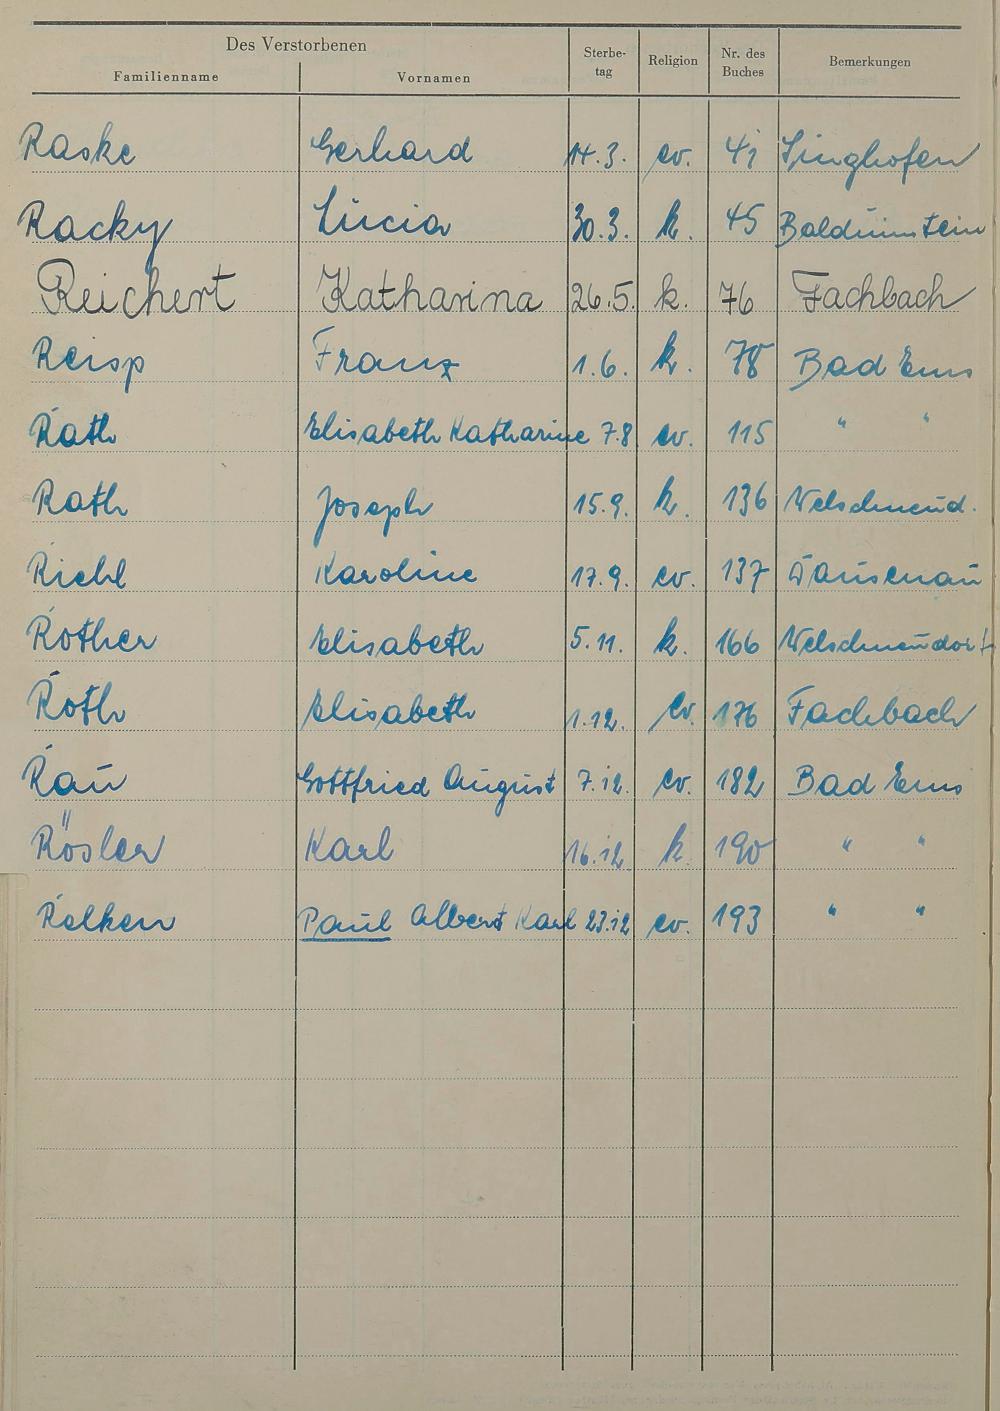 Des Verstorbenen
Familienname Vornamen Sterbe-tag Religion Nr. des Buches Bemerkungen
Raske Gerhard 14.3. ev. 41 Singhofen
Racky Lucia 30.3. k. 45 Balduinstein
Reichert Katharina 26.5. k. 76 Fachbach
Reisp Franz 1.6. k. 78 Bad Ems
Rath Elisabeth Katharine 7.8 ev. 115 " "
Rath Joseph 15.9. k. 136 Welschneud.
Riehl Karoline 17.9. ev. 137 Dausenau
Rother Elisabeth 5.11. k. 166 Welschneudorf
Roth Elisabeth 1.12. ev. 176 Fachbach
Rau Gottfried August 7.12. ev. 182 Bad Ems
Rösler Karl 16.12. k. 190 " "
Relken Paul Albert Karl 23.12 ev. 193 " "